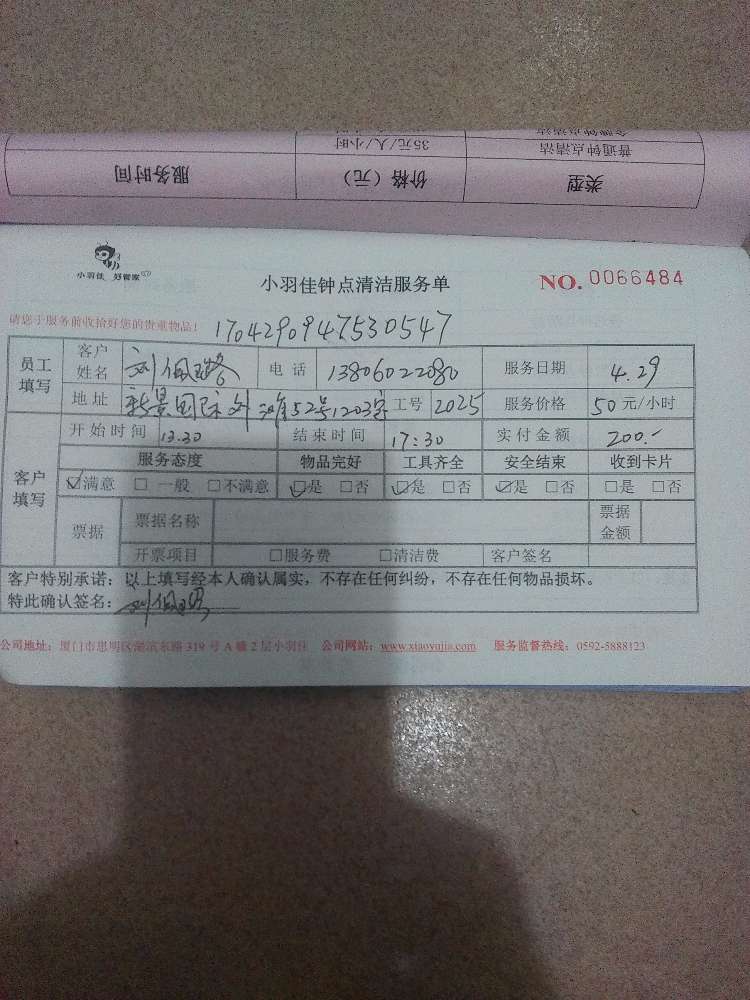 金牌钟点清洁
普通钟点清洁 35元/人/小时
类型 价格（元） 服务时间
小羽佳 好管家
小羽佳钟点清洁服务单 NO. 0066484
请您于服务前收拾好您的贵重物品！ 1704290947530547
员工填写 客户姓名 刘佩 电话 13806022080 服务日期 4.29
地址 新景国际外滩52号1203室 工号 2025 服务价格 50元/小时
客户填写 开始时间 13.30 结束时间 17:30 实付金额 200.-
服务态度 物品完好 工具齐全 安全结束 收到卡片
☑满意 □ 一般 □不满意 ☑是 □否 ☑是 □否 ☑是 □否 □是 □否
票据 票据名称 票据金额
开票项目 □服务费 □清洁费 客户签名
客户特别承诺：以上填写经本人确认属实，不存在任何纠纷，不存在任何物品损坏。
特此确认签名：刘佩
公司地址：厦门市思明区湖滨东路 319 号 A 幢 2 层小羽佳 公司网站：www.xiaoyujia.com 服务监督热线：0592-5888123